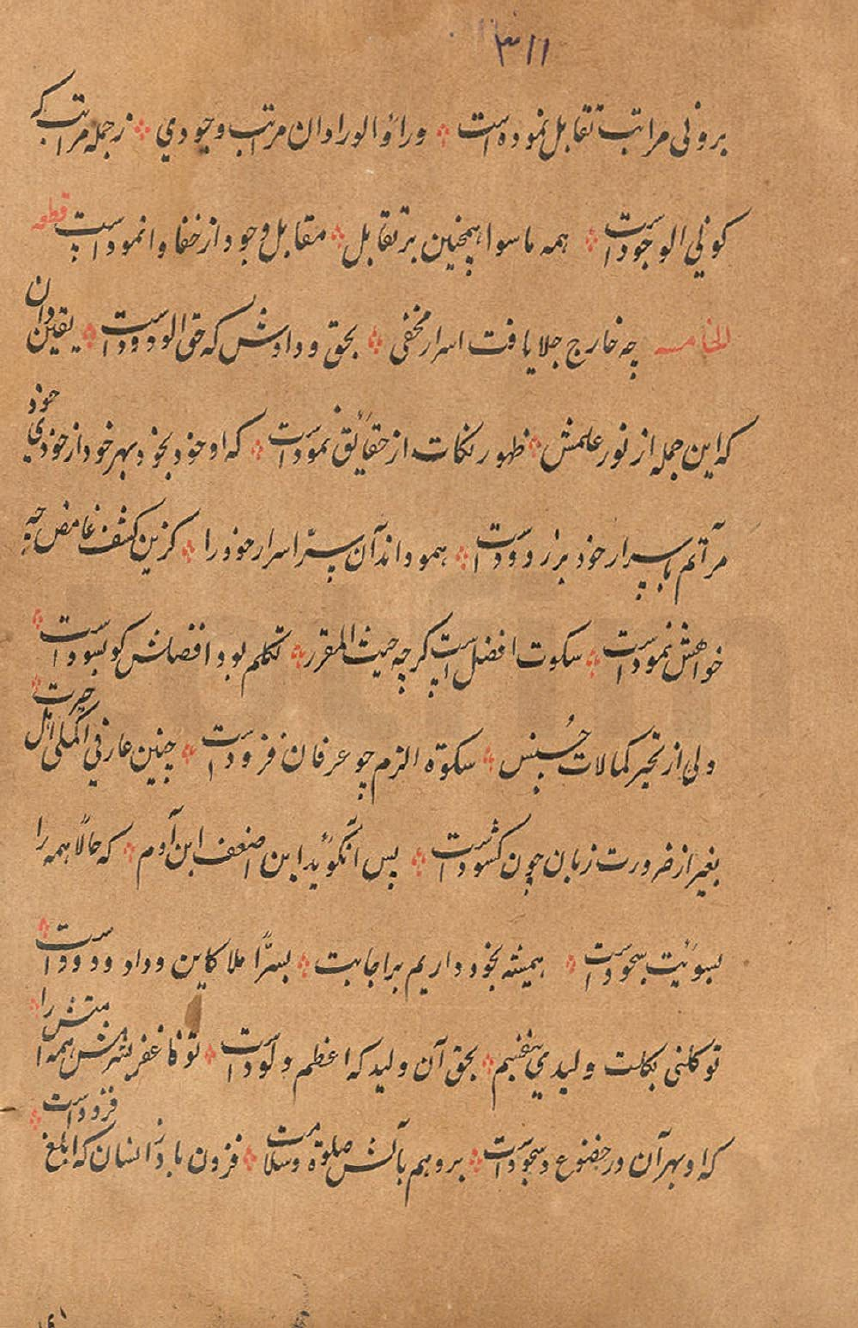 ۳۱۱
برونی مراتب تقابل نموده است ؞ وراؤ الورا دان مرتب وجودی ؞ زجمله مراتب که
کونی الوجود است ؞ همه ماسوا همچنین بر تقابل ؞ مقابل وجود از خفا وا نمود است قطعه
الخامسه چه خارج جلا یافت اسرار مخفی ؞ بحق ودادش که حق الودود است ؞ یقین دان
که این جمله از نور علمش ؞ ظهور نکات از حقائق نمود است ؞ که او خود بخود بهر خود از خودی خود
مرآتم باسرار خود بر زدود است ؞ همو داند آن سرّ اسرار خود را ؞ کزین کشف غامض چه
خواهش نمود است ؞ سکوت افضل است گرچه حیث المقرر ؞ تکلم بود افضلش کو بسود است ؞
ولی از تحیر کمالات حُسنش ؞ سکوة الزم چو عرفان فزود است ؞ چنین عارفی اکملی اهل حیرت ؞
بغیر از ضرورت زبان چون کشود است ؞ پس آنگو ید ابن اضعف ابن آدم ؞ که حالا همه را
بسوئیت سجود است ؞ همیشه بخود داریم براجابت ؞ بسرًّا ملا کاین وداد ودود است ؞
توکلنی بکلت ولیدی بنفسیم ؞ بحق آن ولید که اعظم ولود است ؞ تو فاغفر بشرمش همه امتش را ؞
که او بهر آن در خضوع و سجود است ؞ برو هم بآلش صلوة وسلامت ؞ فزون باد زانسان که ابلغ فزود است ؞